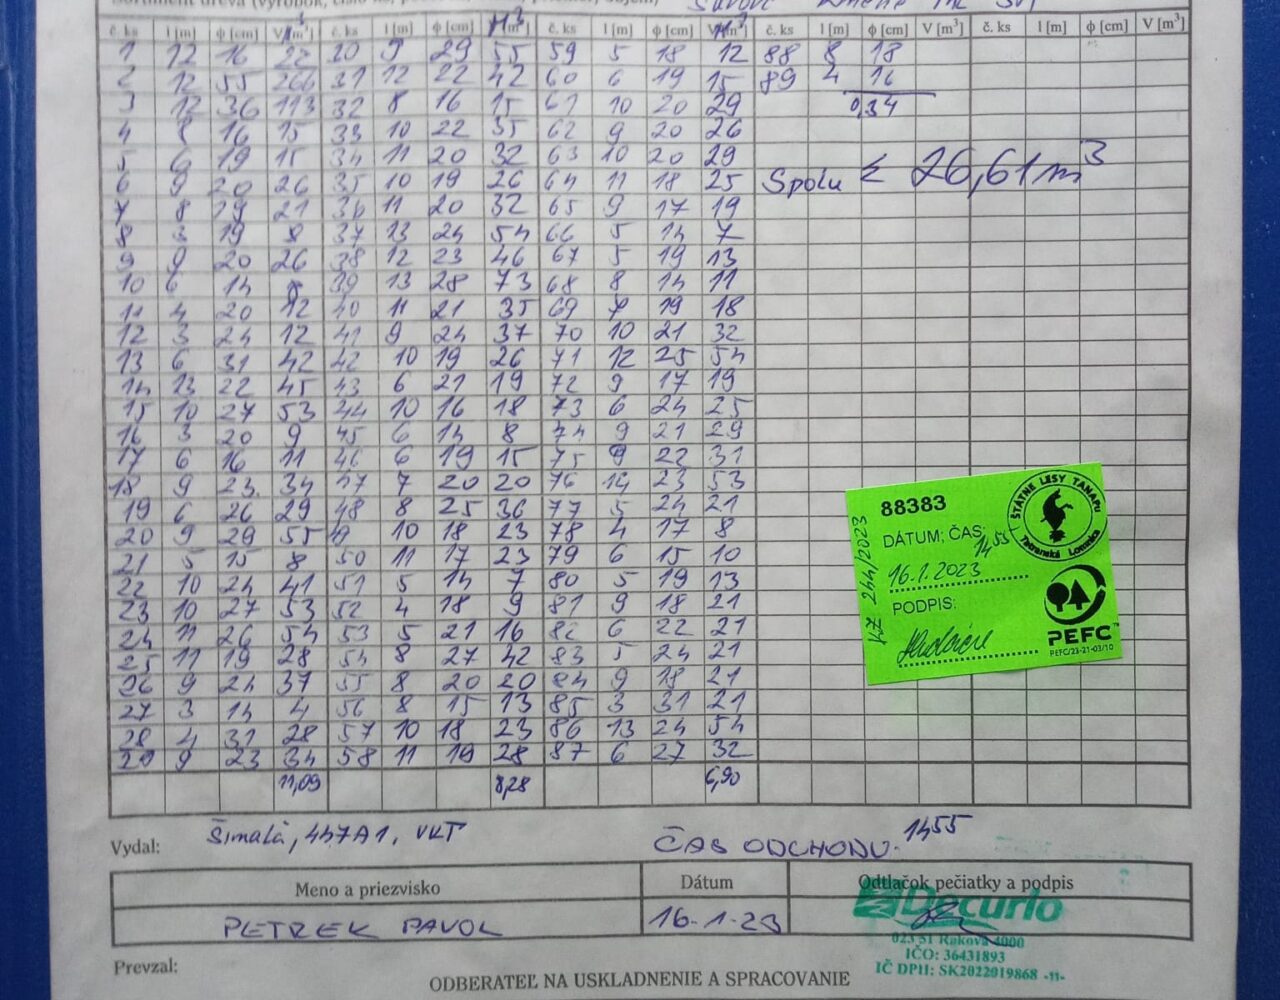 č. ks l [m] ϕ [cm] V [m³] č. ks l [m] ϕ [cm] [m³] č. ks l [m] ϕ [cm] V [m³] č. ks l [m] ϕ [cm] V [m³] č. ks l [m] ϕ [cm] V [m³]
1 12 16 22 30 9 29 55 59 5 18 12 88 8 18
2 12 55 266 31 12 22 42 60 6 19 15 89 4 16
3 12 36 113 32 8 16 15 61 10 20 29 0,34
4 8 16 15 33 10 22 35 62 9 20 26
5 6 19 15 34 11 20 32 63 10 20 29
6 9 20 26 35 10 19 26 64 11 18 25 Spolu Σ 26,61 m³
7 8 19 21 36 11 20 32 65 9 17 19
8 3 19 8 37 13 24 54 66 5 14 7
9 9 20 26 38 12 23 46 67 5 19 13
10 6 14 8 39 13 28 73 68 8 14 11
11 4 20 12 40 11 21 35 69 7 19 18
12 3 24 12 41 9 24 37 70 10 21 32
13 6 31 42 42 10 19 26 71 12 25 54
14 13 22 45 43 6 21 19 72 9 17 19
15 10 27 53 44 10 16 18 73 6 24 25
16 3 20 9 45 6 14 8 74 9 21 29
17 6 16 11 46 6 19 15 75 9 22 31
18 9 23 34 47 7 20 20 76 14 23 53
19 6 26 29 48 8 25 36 77 5 24 21
20 9 29 55 49 10 18 23 78 4 17 8
21 5 15 8 50 11 17 23 79 6 15 10
22 10 24 41 51 5 14 7 80 5 19 13
23 10 27 53 52 4 18 9 81 9 18 21
24 11 26 54 53 5 21 16 82 6 22 21
25 11 19 28 54 8 27 42 83 5 24 21
26 9 24 37 55 8 20 20 84 9 18 21
27 3 14 4 56 8 15 13 85 3 31 21
28 4 31 28 57 10 18 23 86 13 24 54
29 9 23 34 58 11 19 28 87 6 27 32
11,09 8,28 6,90
88383
ŠTÁTNE LESY TANAPU
Tatranská Lomnica
DÁTUM; ČAS: 14 55
16.1.2023
PODPIS:
KZ 244/2023
PEFC™
PEFC/23-21-03/10
Vydal: Šimalá, 447A1, VKT
ČAS ODCHODU: 14 55
Meno a priezvisko Dátum Odtlačok pečiatky a podpis
PETREK PAVOL 16-1-23
Decurlo
023 51 Raková 1000
IČO: 36431893
IČ DPH: SK2022019868 -11-
Prevzal:
ODBERATEĽ NA USKLADNENIE A SPRACOVANIE